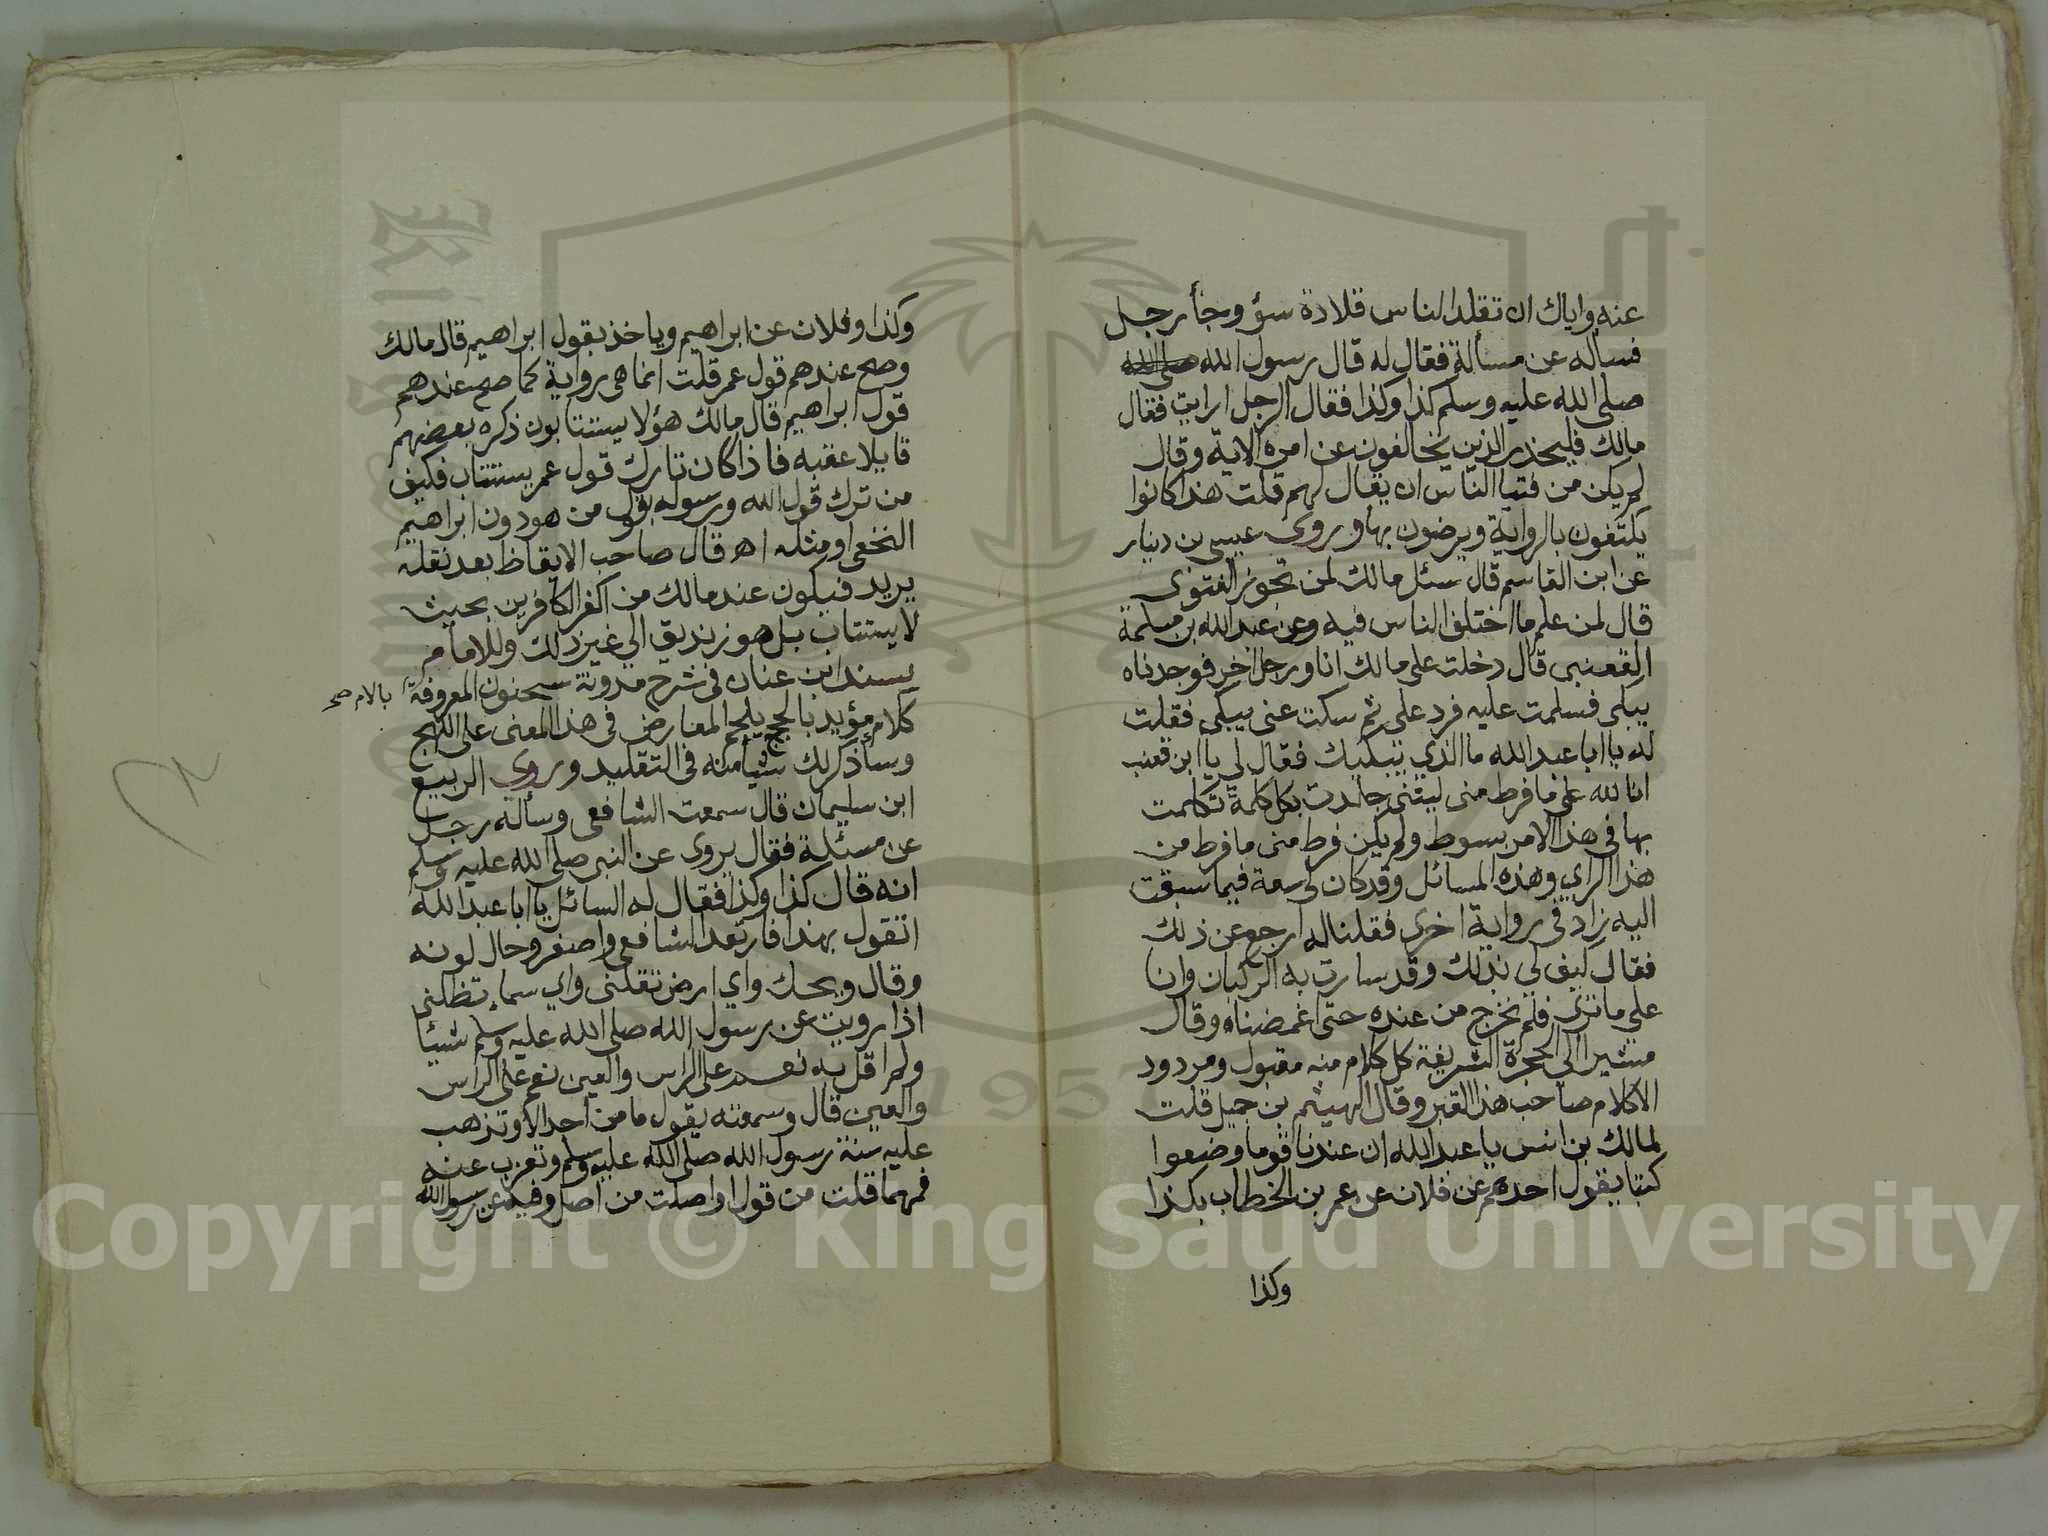 عنه واياك ان تقلد الناس قلادة سؤ وجأ رجل
فسأله عن مسألة فقال له قال رسول الله صلى الله
صلى الله عليه وسلم كذا وكذا فقال الرجل ارايت فقال
مالك فليحذر الذين يخالفون عن امره الاية وقال
لم يكن من فتيا الناس ان يقال لهم قلت هذا كانوا
يكتفون بالرواية ويرضون بها وروى عيسى بن دينار
عن ابن القاسم قال سئل مالك لمن تجوز الفتوى
قال لمن علم ما اختلف الناس فيه وعن عبد الله بن مسلمة
القعنبى قال دخلت على مالك انا ورجل اخر فوجدناه
يبكى فسلمت عليه فرد على ثم سكت عنى يبكى فقلت
له يا ابا عبد الله ما الذي يبكيك فقال لي يا ابن قعنب
انا لله على ما فرط منى ليتنى جلدت بكل كلمة تكلمت
بها فى هذا الامر بسوط ولم يكن فرط منى ما فرط من
هذا الراي وهذه المسائل وقد كان لى سعة فيما سبقت
اليه زاد فى رواية اخرى فقلنا له ارجع عن ذلك
فقال كيف لي بذلك وقد سارت به الركبان وانا
على ما ترى فلم نخرج من عنده حتى اغمضناه وقال
مشيرا الى الحجرة الشريفة كل كلام منه مقبول ومردود
الا كلام صاحب هذا القبر وقال الهيثم بن جميل قلت
لمالك بن انس يا عبد الله ان عندنا قوما وضعوا
كتبا يقول احدهم عن فلان عن عمر بن الخطاب بكذا
وكذا
وكذا وفلان عن ابراهيم وياخذ بقول ابراهيم قال مالك
وصح عندهم قول عمر قلت انما هى رواية كما صح عندهم
قول ابراهيم قال مالك هؤلا يستتابون ذكره بعضهم
قايلا عقبه فاذا كان تارك قول عمر يستتاب فكيف
من ترك قول الله ورسوله بقول من هو دون ابراهيم
النخعى او مثله اه قال صاحب الايقاظ بعد نقله
يريد فيكون عند مالك من اكفر الكافرين بحيث
لا يستتاب بل هو زنديق الي غير ذلك وللامام
سند ابن عنان فى شرح مدونة سحنون المعروفة
بالام صح
كلام مؤيد بالحجج يلجم المعارض فى هذا المعنى على اللهج
وسأذكر لك شيأ منه فى التقليد وروى الربيع
ابن سليمان قال سمعت الشافعى وسأله رجل
عن مسئلة فقال يروى عن النبى صلى الله عليه وسلم
انه قال كذا وكذا فقال له السائل يا ابا عبد الله
اتقول بهذا فارتعد الشافعى واصفر وحال لونه
وقال ويحك واي ارض تقلنى واي سماء تظلنى
اذا رويت عن رسول الله صلى الله عليه وسلم شيئا
ولم اقل به نعم على الراس والعين نعم على الراس
والعين قال وسمعته يقول ما من احد الا وتذهب
عليه سنة رسول الله صلى الله عليه وسلم وتعزب عنه
فمهما قلت من قول او اصلت من اصل وفيه عن رسول الله
Copyright © King Saud University
1957